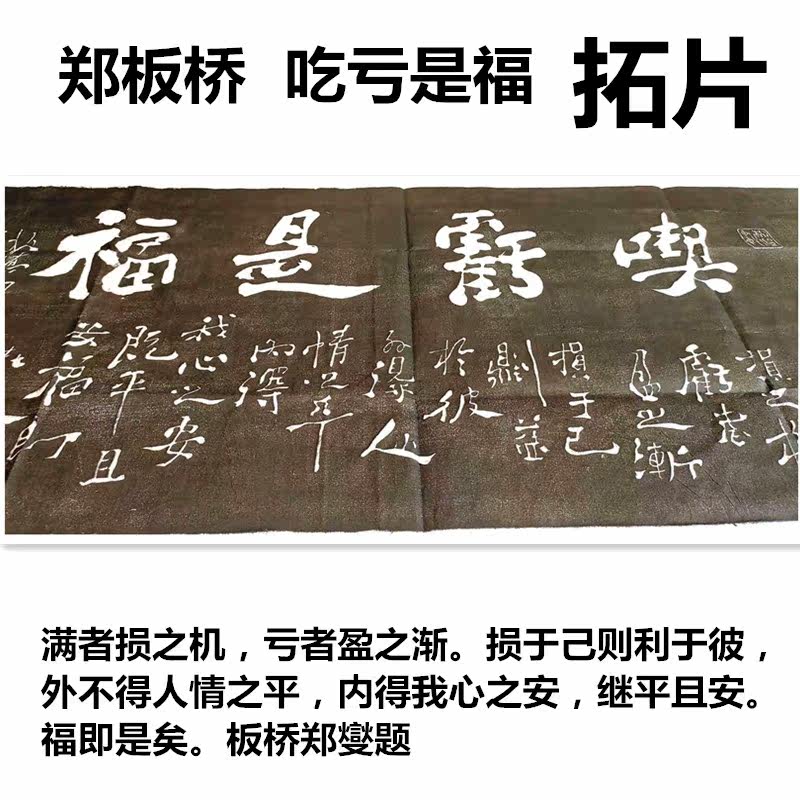 郑板桥 吃亏是福 拓片
喫虧是福
損之
虧者
盈之漸
損于己
則益
於彼
外得人
情之平
內得
我心之安
既平且
安福即
满者损之机，亏者盈之渐。损于己则利于彼，
外不得人情之平，内得我心之安，继平且安。
福即是矣。板桥郑燮题